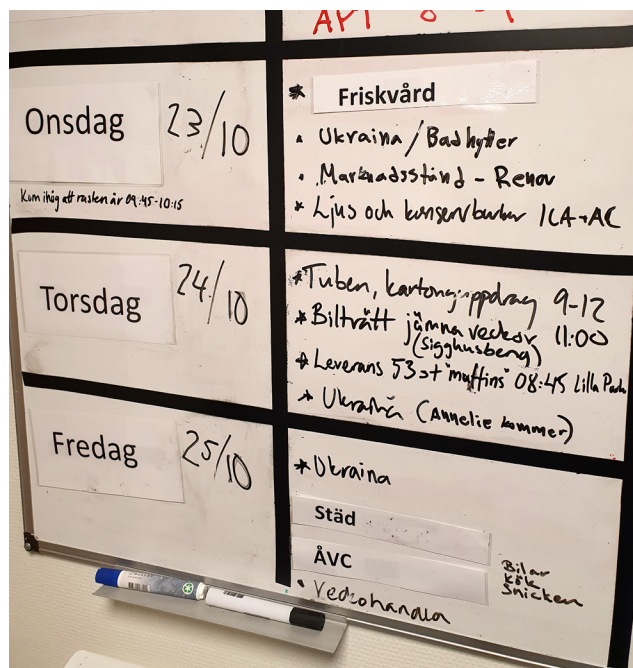 API
Onsdag 23/10
Kom ihåg att rasten är 09:45-10:15
* Friskvård
• Ukraina / Badhytter
• Marknadsstånd - Renov
* Ljus och konservburkar ICA+AC
Torsdag 24/10
* Tuben, kartonguppdrag 9-12
* Biltvätt jämna veckor 11:00
(Sigghusberg)
* Leverans 53st "muffins" 08:45 Lilla
* Ukraina (Annelie kommer)
Fredag 25/10
* Ukraina
Städ
ÅVC
Bilar
Kök
Snickeri
• Veckohandla